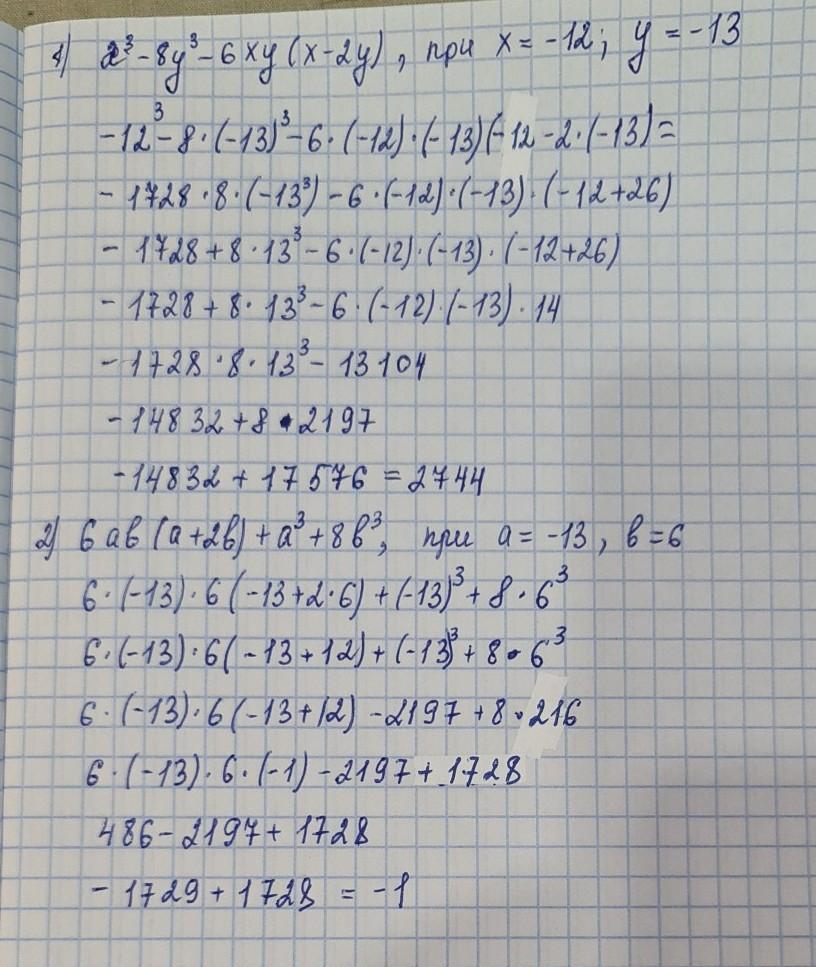 1) x³ - 8y³ - 6xy (x - 2y), при x = -12; y = -13
-12³ - 8 · (-13)³ - 6 · (-12) · (-13) (-12 - 2 · (-13) =
- 1728 · 8 · (-13³) - 6 · (-12) · (-13) · (-12+26)
- 1728 + 8 · 13³ - 6 · (-12) · (-13) · (-12+26)
- 1728 + 8 · 13³ - 6 · (-12) · (-13) · 14
- 1728 · 8 · 13³ - 13104
-14832 + 8 · 2197
-14832 + 17576 = 2744
2) 6ab (a+2b) + a³ + 8b³, при a = -13, b = 6
6 · (-13) · 6 (-13+2·6) + (-13)³ + 8 · 6³
6 · (-13) · 6 (-13 + 12) + (-13)³ + 8 · 6³
6 · (-13) · 6 (-13+12) - 2197 + 8 · 216
6 · (-13) · 6 · (-1) - 2197 + 1728
486 - 2197 + 1728
- 1729 + 1728 = -1